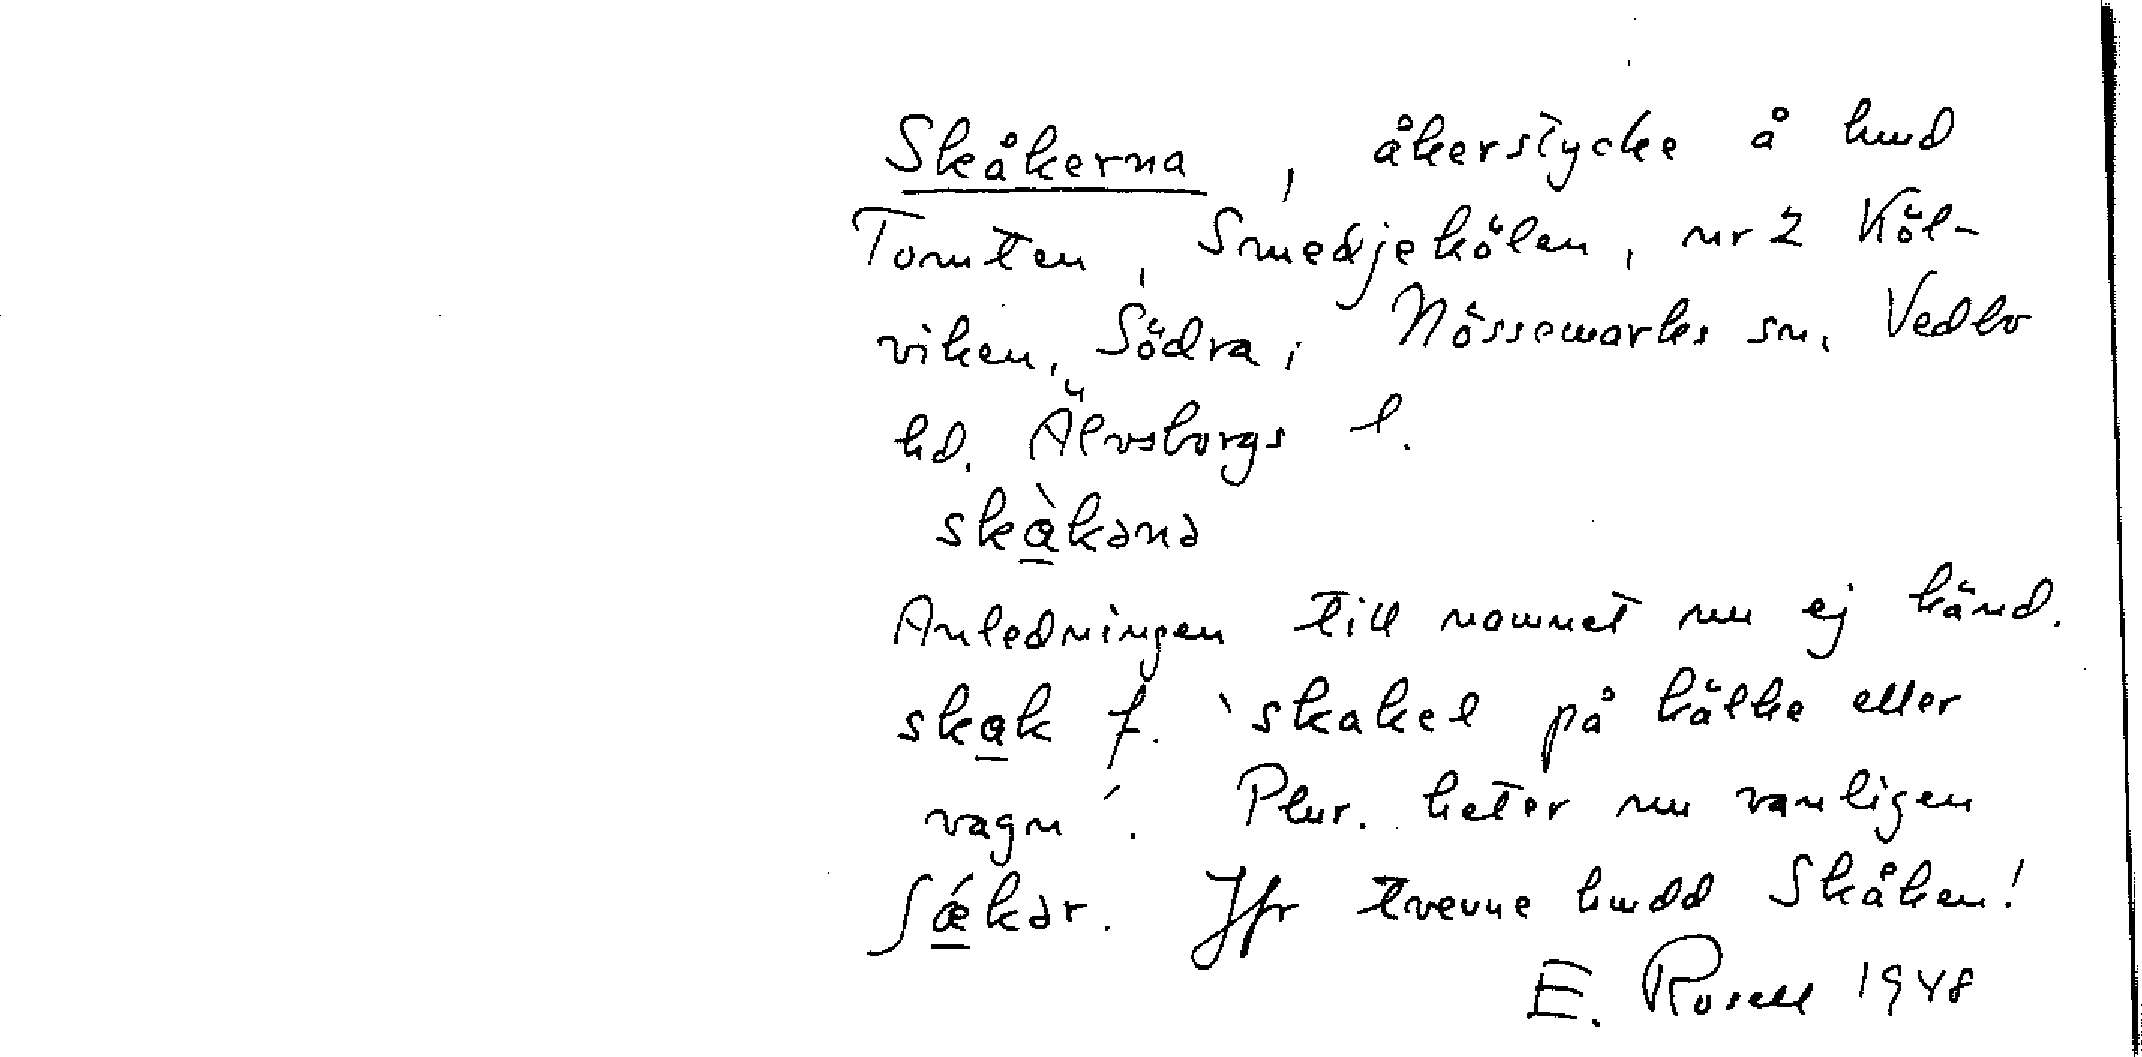 Skåkerna, åkerstycke å hmd
Tomten, Smedjekölen, nr 2 Köl-
viken, Södra, Nössemarks sn, Vedbo
hd. Älvsborgs l.
skɑ̱̀kənə
Anledningen till namnet nu ej känd.
skɑ̱k f. `skakel på kälke eller
vagn´. Plur. heter nu vanligen
ʃǽ̱kər. Jfr tvenne hmdd Skåken!
E. Rosell 1948